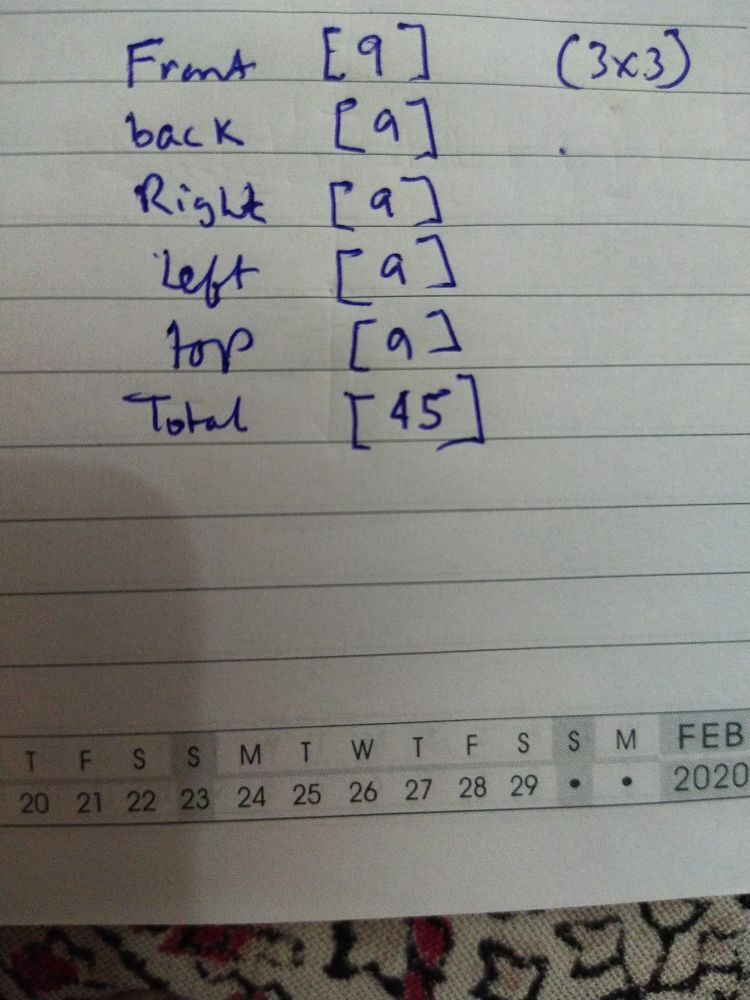 Front [9] (3x3)
back [9]
Right [9]
Left [9]
top [9]
Total [45]
T F S S M T W T F S S M FEB
20 21 22 23 24 25 26 27 28 29 • • 2020